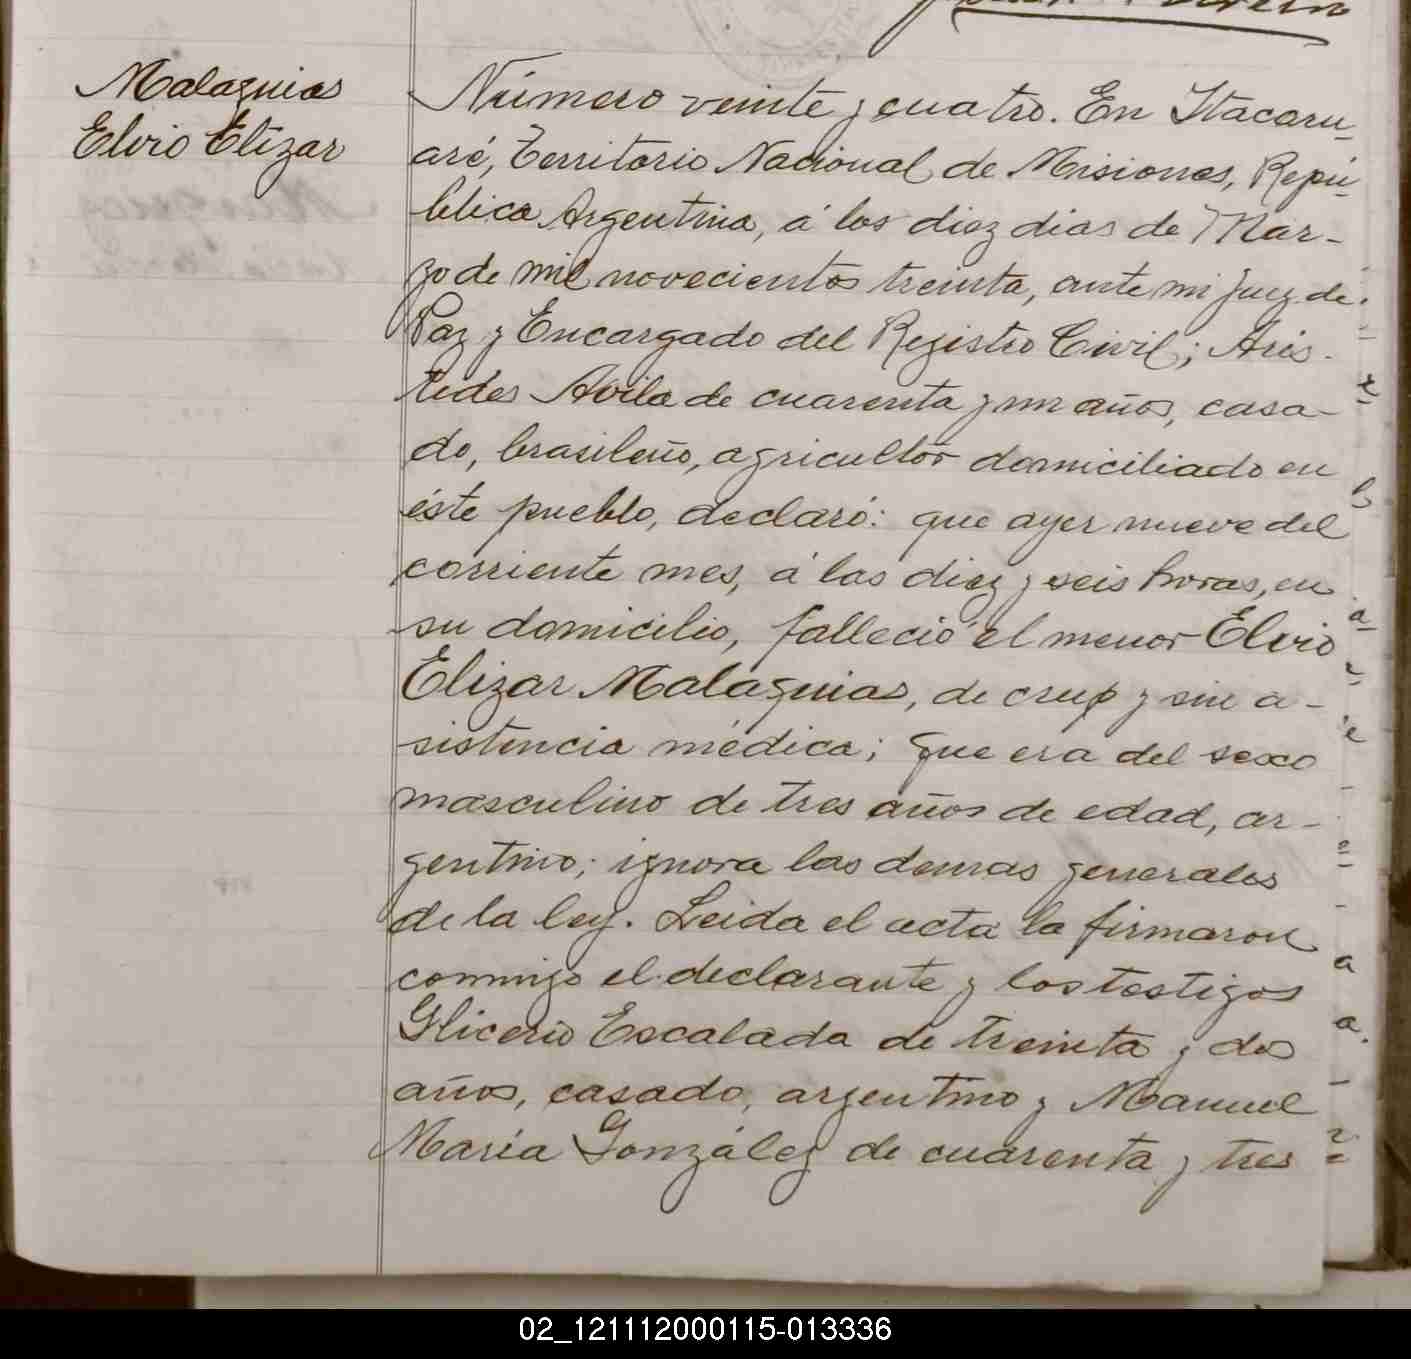 Malaquias
Elvio Elizar
Número veinte y cuatro. En Itacaru-
aré, Territorio Nacional de Misiones, Repú-
blica Argentina, á los diez dias de Mar-
zo de mil novecientos treinta, ante mi Juez de
Paz y Encargado del Registro Civil; Aris-
tides Avila de cuarenta y un años, casa-
do, brasileño, agricultor domiciliado en
éste pueblo, declaró: que ayer nueve del
corriente mes, á las diez y seis horas, en
su domicilio, falleció el menor Elvio
Elizar Malaquias, de crup y sin a-
sistencia médica; que era del sexo
masculino de tres años de edad, ar-
gentino; ignora las demas generales
de la ley. Leida el acta la firmaron
conmigo el declarante y los testigos
Glicerio Escalada de treinta y dos
años, casado, argentino y Manuel
María González de cuarenta y tres
02_121112000115-013336